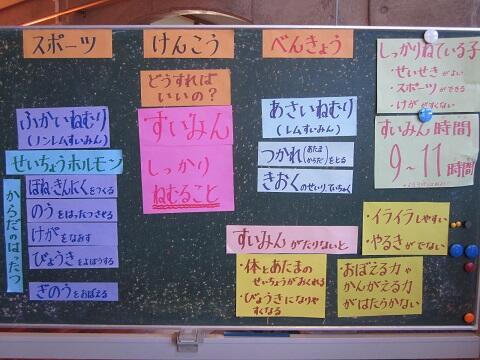 スポーツ
けんこう
べんきょう
どうすれば
いいの?
ふかいねむり
(ノンレムすいみん)
せいちょうホルモン
からだのはったつ
ほね・きんにくをつくる
のうをはったつさせる
けがをなおす
びょうきをよぼうする
ぎのうをおぼえる
すいみん
しっかり
ねむること
あさいねむり
(レムすいみん)
つかれ(あたま からだ)をとる
きおくのせいり、ていちゃく
しっかりねている子
・せいせきがよい
・スポーツができる
・けががすくない
すいみん時間
9〜11時間
すいみんがたりないと
・イライラしやすい
・やるきがでない
・体とあたまの
せいちょうがおくれる
・びょうきになりや
すくなる
おぼえる力や
かんがえる力
がはたらかない